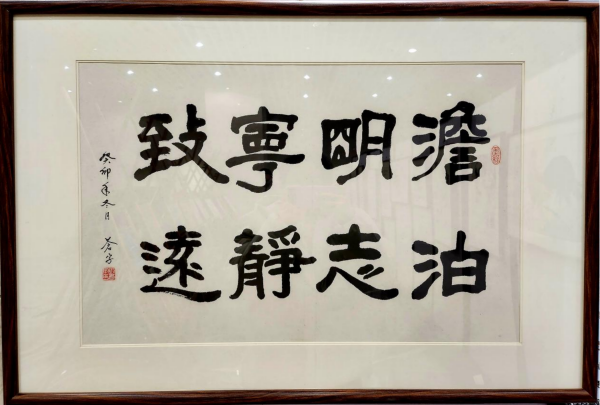 澹泊
明志
寧靜
致遠
癸卯年冬月